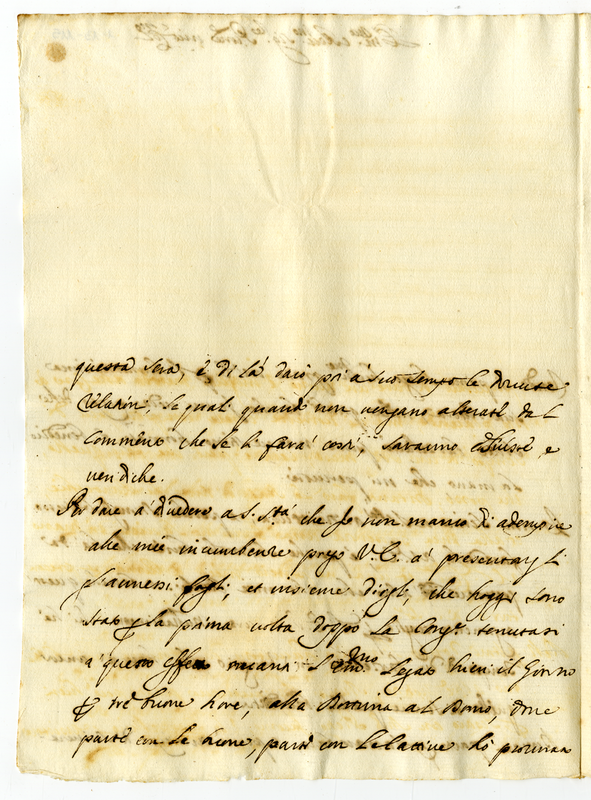 questa sera, e di là darò poi a suo tempo le dovute
relationi, le quali quando non vengano alterate dal
Commento che se li farà costì, saranno distinte, e
veridiche.
Per dare a divedere a S. Stà che Io non manco di adempire
alle mie incumbenze prego V. E. a presentargli
gl'annessi fogli, et insieme dirgli, che hoggi sono
stato la prima volta doppo la Congne tenutasi
a questo effetto l'Emmo Legato hieri il Giorno
per tre buone hore, alla Bonina al Bono, dove
parte con le buone, parte con le cattive hò